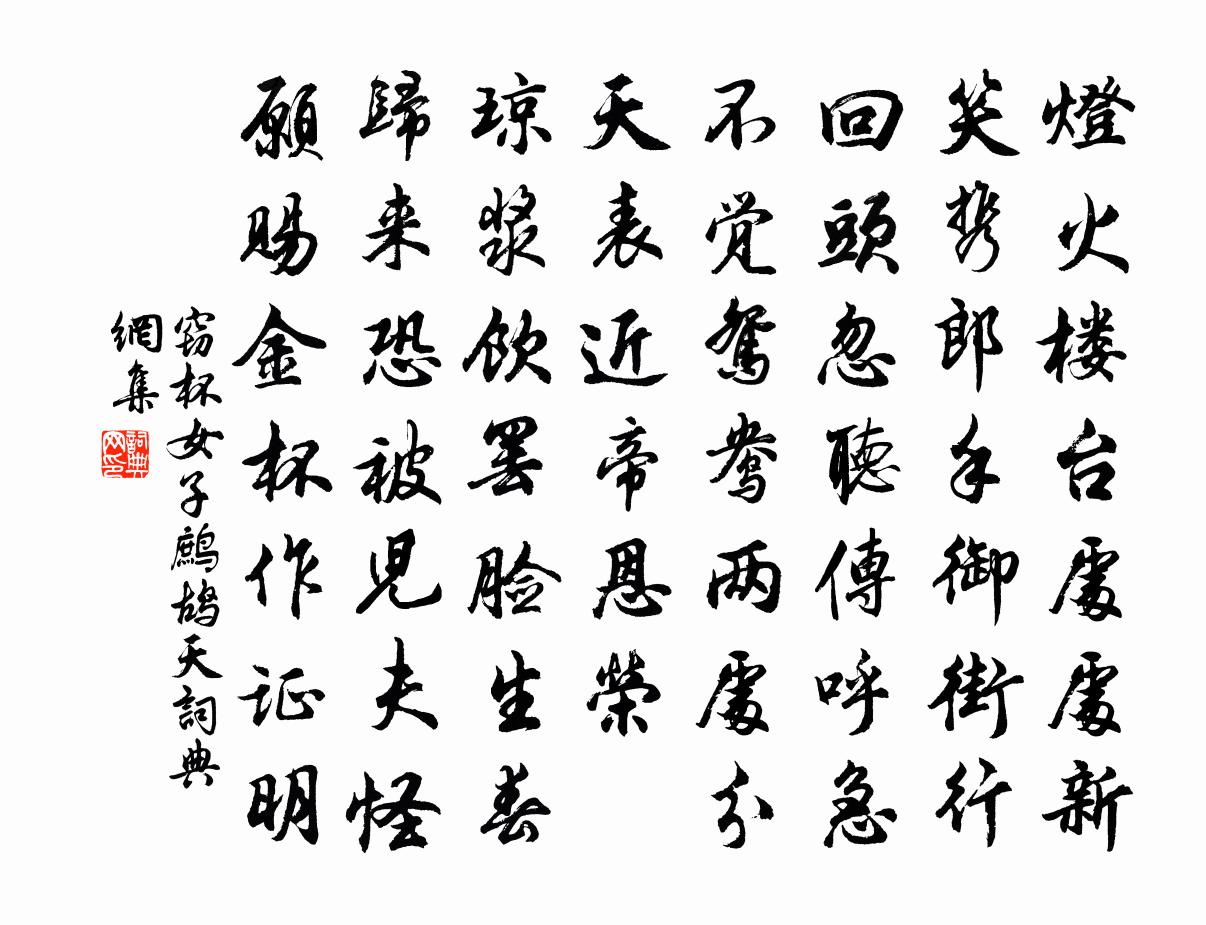 燈火楼台處處新
笑携郎手御街行
回頭忽聽傳呼急
不覚鴛鴦两處分
天表近帝恩榮
琼漿飲罢脸生春
歸来恐被児夫怪
願賜金杯作证明
窃杯女子鷓鴣天詞典
網集
詞典网印